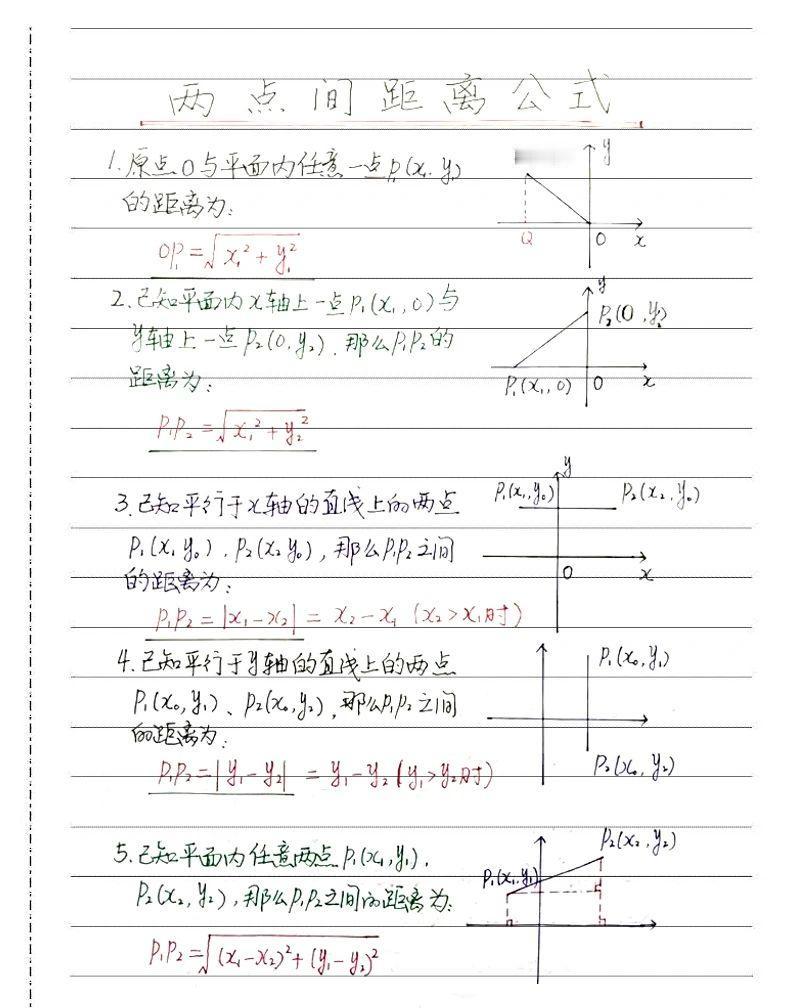 两点间距离公式
1.原点O与平面内任意一点P₁(x₁ y₁)
的距离为:
OP₁=√x₁²+y₁²
Q
O
x
y
2.已知平面内x轴上一点P₁(x₁,0)与
y轴上一点P₂(0,y₂).那么P₁P₂的
距离为:
P₁P₂=√x₁²+y₂²
y
P₂(0,y₂)
P₁(x₁,0)
O
x
3.已知平行于x轴的直线上的两点
P₁(x₁ y₀).P₂(x₂ y₀),那么P₁P₂之间
的距离为:
P₁P₂=|x₁-x₂|=x₂-x₁(x₂>x₁时)
y
P₁(x₁,y₀)
P₂(x₂,y₀)
O
x
4.已知平行于y轴的直线上的两点
P₁(x₀,y₁)、P₂(x₀,y₂),那么P₁P₂之间
的距离为:
P₁P₂=|y₁-y₂|=y₁-y₂(y₁>y₂时)
P₁(x₀,y₁)
P₂(x₀,y₂)
5.已知平面内任意两点P₁(x₁,y₁).
P₂(x₂,y₂),那么P₁P₂之间的距离为:
P₁P₂=√(x₁-x₂)²+(y₁-y₂)²
P₁(x₁,y₁)
P₂(x₂,y₂)